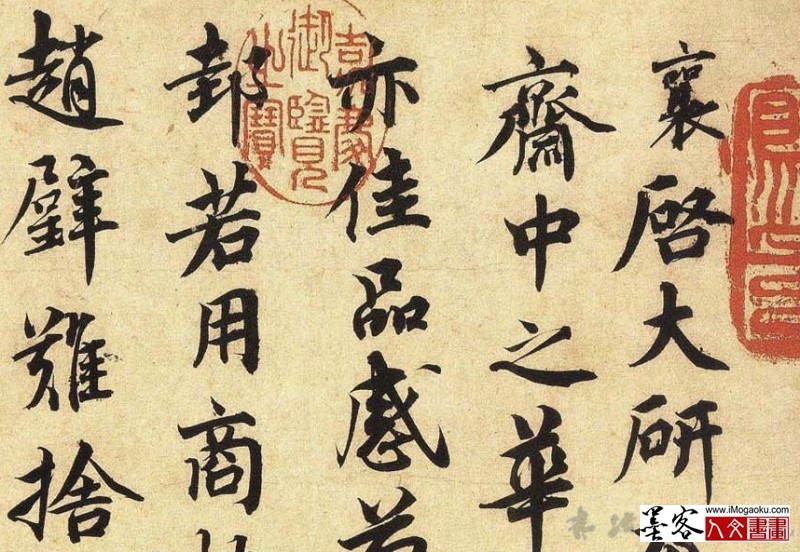 襄啓大研
齋中之華
亦佳品感
邽若用商
趙璧難捨
嘉慶
御覽
之寶
www.iMogaoku.com
墨客 人文書畫